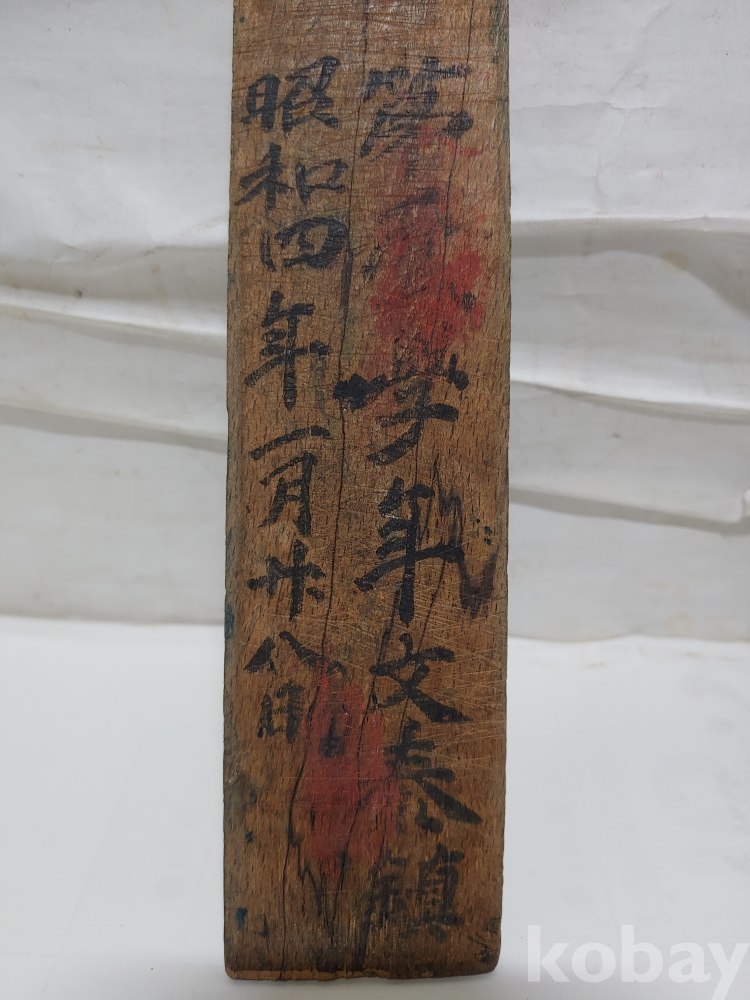 第 学年文泰鎮
昭和四年一月廿八日
kobay